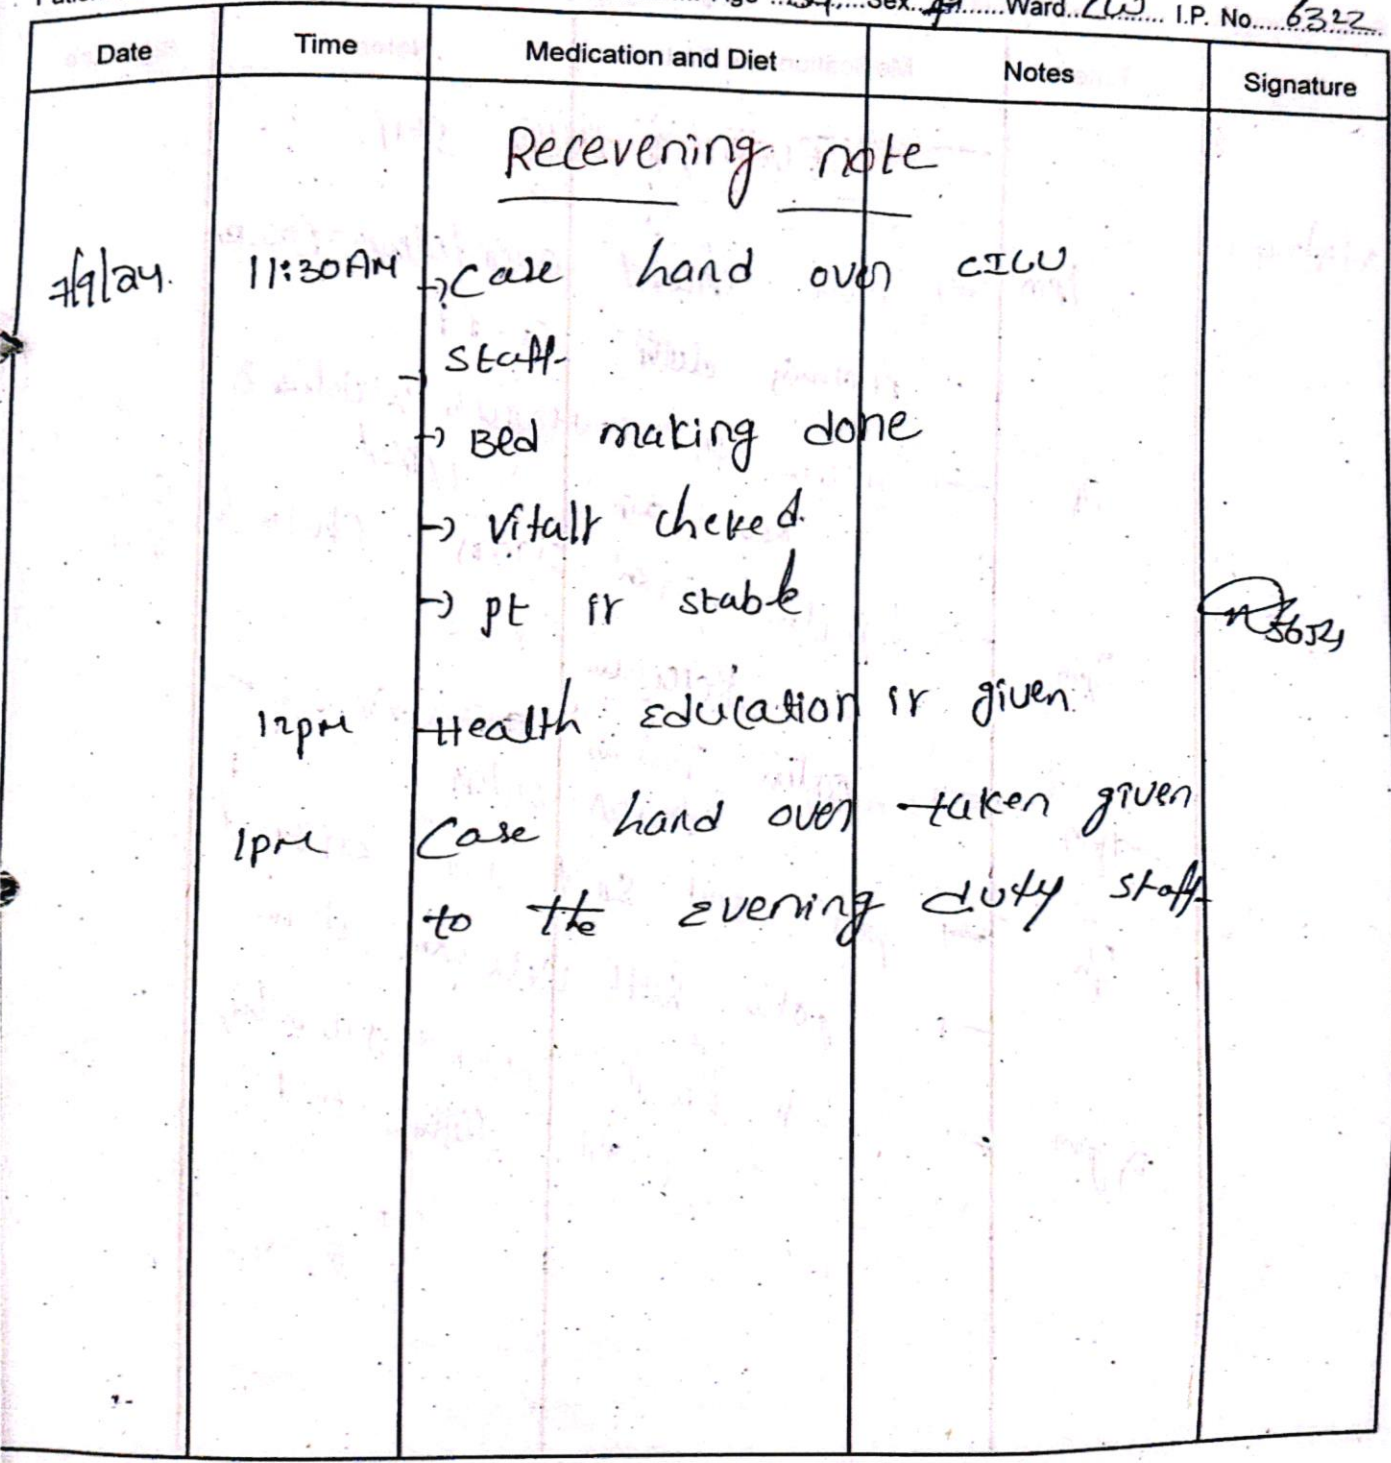 Sex Ward CW I.P. No. 6322
Date Time Medication and Diet Notes Signature
Recevening note
7/9/24. 11:30AM → Case hand over CICU
staff
→ Bed making done
→ Vitalr cheked.
→ pt ir stable
12pm Health Education ir given
1pm Case hand over taken given
to the Evening duty staff